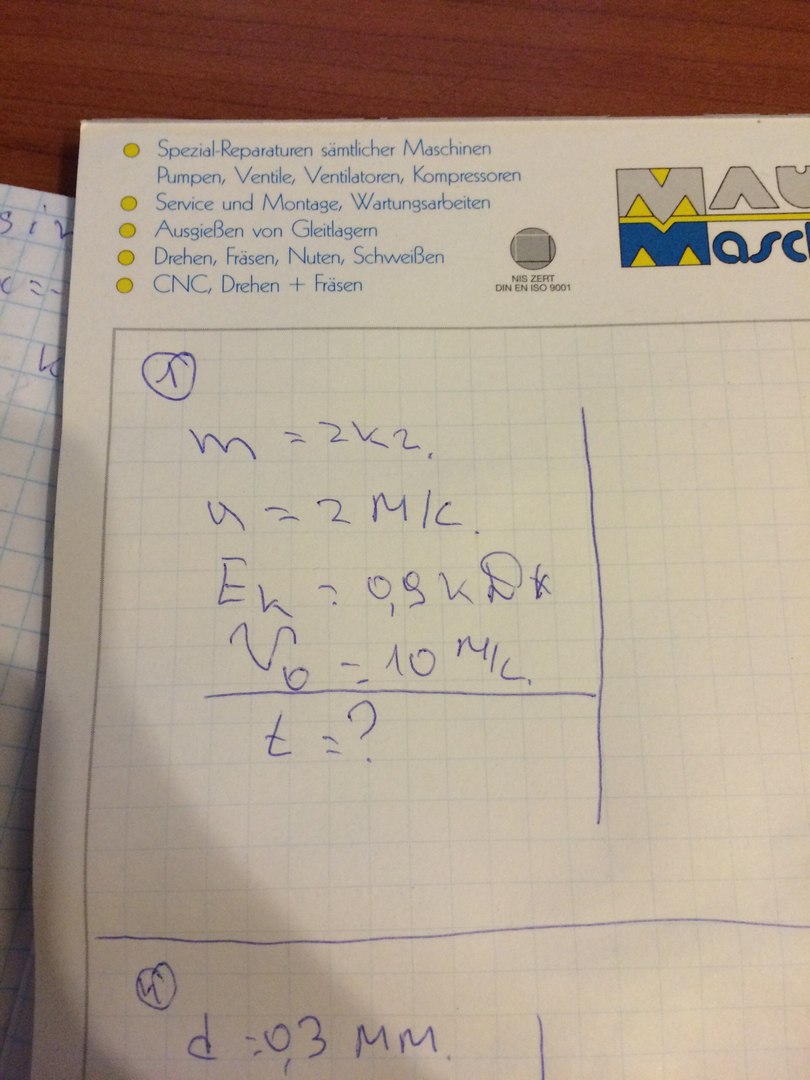 Spezial-Reparaturen sämtlicher Maschinen
Pumpen, Ventile, Ventilatoren, Kompressoren
Service und Montage, Wartungsarbeiten
Ausgießen von Gleitlagern
Drehen, Fräsen, Nuten, Schweißen
CNC, Drehen + Fräsen
NIS ZERT
DIN EN ISO 9001
MAU
Masch
1
m = 2 кг.
u = 2 м/с.
Eк = 0,9 кДж
V₀ = 10 м/с.
t = ?
4
d = 0,3 мм.